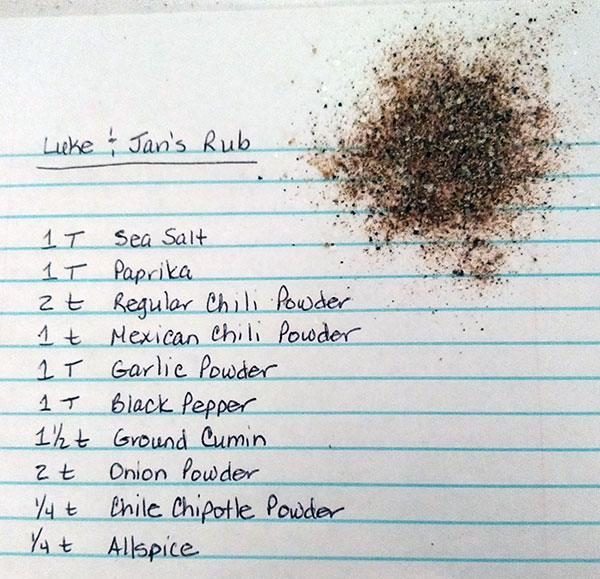 Luke & Jan's Rub
1 T Sea Salt
1 T Paprika
2 t Regular Chili Powder
1 t Mexican Chili Powder
1 T Garlic Powder
1 T Black Pepper
1½ t Ground Cumin
2 t Onion Powder
¼ t Chile Chipotle Powder
¼ t Allspice